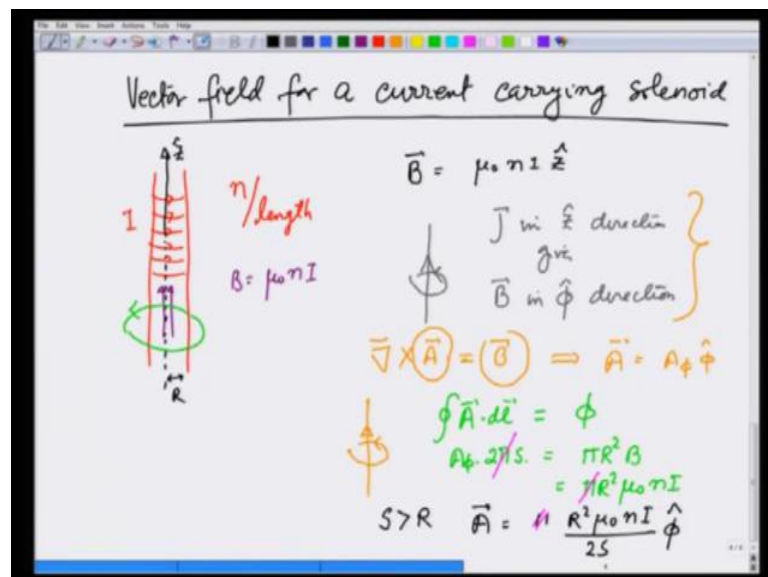 File Edit View Insert Actions Tools Help
Vector field for a current carrying solenoid
ẑ
I
n/length
B = μ₀nI
R
B⃗ = μ₀ n I ẑ
J⃗ in ẑ direction
give
B⃗ in φ̂ direction
∇⃗ × A⃗ = B⃗ ⟹ A⃗ = A_φ φ̂
∮A⃗·dl⃗ = ϕ
A_φ. 2πs. = πR² B
= πR² μ₀nI
S>R A⃗ = R² μ₀ n I / 2S φ̂